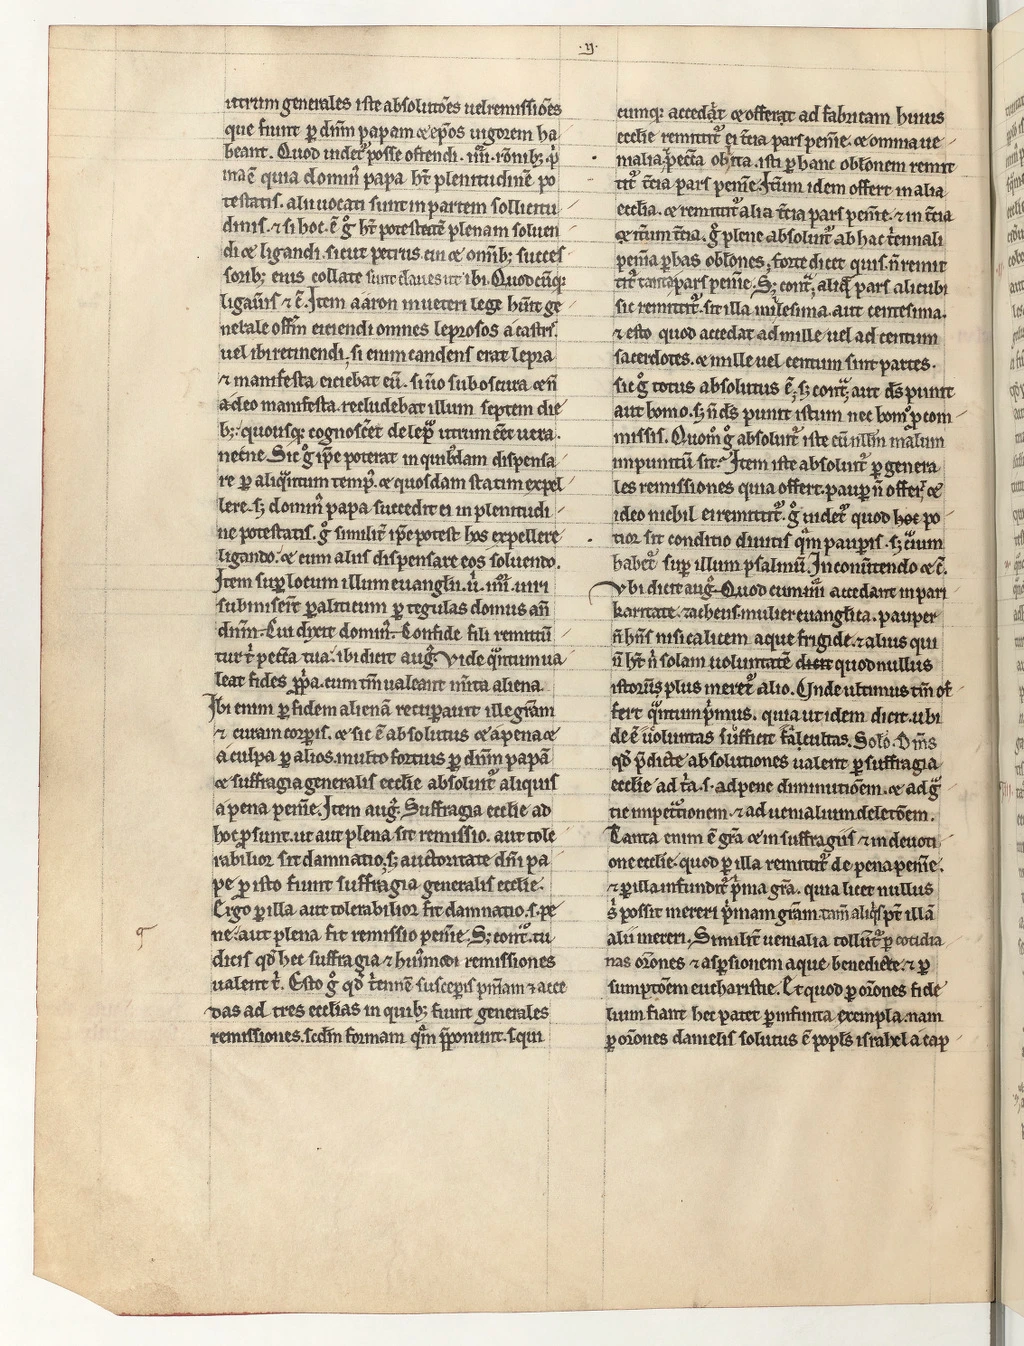 ·ij·
utrum generales iste absolutões uel remissiões
que fiunt p̱ dñm papam ⁊ ep̃os uigorem ha
beant. Quod uidet᷑ posse ostendi .iiii. rõnibꝫ. p̾
ma ẽ quia domin᷒ papa hꝫ plenitudinẽ po
testatis. alii uocati sunt in partem sollicitu
dinis. ⁊ si hoc .ẽ g̊ hꝫ potestatẽ plenam soluen
di ⁊ ligandi. sicut petrus. cui ⁊ omĩbꝫ succes
soribꝫ eius collate sunt claues ut ibi. Quodcũqꝫ
ligaũis ⁊ c̃. Item aaron in ueteri lege hũit ge
nerale offm̃ eiciendi omnes leprosos a castris.
uel ibi retinendi. si enim candens erat lepra
⁊ manifesta eiciebat eũ. si ũo sub oscura ⁊ ñ
adeo manifesta. recludebat illum septem die
bꝫ. quousqꝫ cognosc̃et de lep̾ utrum ẽet uera.
necne. Sic g̊ ip̃e poterat in quibꝰdam dispensa
re p̱ aliq̾ntum temp᷒. ⁊ quosdam statim expel
lere. sꝫ domin᷒ papa succedit ei in plenitudi
ne potestatis. g̊ similit̃ ip̃e potest hos expellere
ligando. ⁊ cum aliis dispensare eos soluendo.
Item sup̱ locum illum euanglii. ũ. iiii. uiri
submiser̃t p̱aliticum p̱ tegulas domus añ
dñm. Cui dixit domin᷒. Confide fili remittũ
tur t̾ pecc̃a tua. ibi dicit aug᷒. Vide q̾ntum ua
leat fides p̱p̾a. cum tm̃ ualeant m̃ita aliena.
Ibi enim p̱ fidem alienã recup̱auit ille gr̃am
⁊ curam corp̱is. ⁊ sic ẽ absolutus ⁊ a pena ⁊
a culpa p̱ alios. multo fortius p̱ dñm papã
⁊ suffragia generalis ecclie absoluit᷑ aliquis
a pena penie᷒. Item aug᷒. Suffragia ecclie ad
hoc p̱sunt. ut aut plena sit remissio. aut tole
rabilior sit damnatio. sꝫ auctoritate dñi pa
pe p̱ isto fiunt suffragia generalis ecclie.
Ergo p̱ illa aut tolerabilior fit damnatio .s. pe
ne. aut plena fit remissio penie᷒. Sꝫ cont̾. tu
dicis qd̃ hec suffragia ⁊ hui᷒modi remissiones
ualent t̾. Esto g̊ qd̃ t̾ennẽ susceperis pniam ⁊ acce
das ad tres ecclias in quibꝫ fiunt generales
remissiones. scdm̃ formam q̾m p̱ponunt. s. qui
cumqꝫ accedat ⁊ offerat ad fabricam huius
ecclie remittit᷑ ei t̾cia pars penie᷒. ⁊ omnia ue
malia. pecc̃a oblita. isti p̱ hanc oblõnem remit
tit᷑ t̾cia pars penie᷒. Itum̃ idem offert in alia
ecclia. ⁊ remittit᷑ alia t̾cia pars penie᷒. ⁊ in t̾cia
⁊ it̾um t̾cia. g̊ plene absoluit᷑ ab hac t̾iennali
penia p̱ has oblõnes. forte dicet quis. ñ remit
tit᷑ tanta pars penie᷒. Sꝫ cont̾. aliq̾ pars alicubi
sic remittit᷑. sit illa milesima. aut centesima.
⁊ esto quod accedat ad mille uel ad centum
sacerdotes. ⁊ mille uel centum sint partes.
sic g̊ totus absolutus ẽ. sꝫ cont̾. aut ds̃ punit
aut homo. sꝫ ñ ds̃ punit istum nec homo p̱ com
missis. Quom̃ g̊ absoluit᷑ iste cũ nllm̃ malum
impunitũ sit. Item iste absoluit᷑ p̱ genera
les remissiones quia offert. paup̱ ñ offert. ⁊
ideo nichil ei remittit᷑. g̊ uidet᷑ quod hoc po
tior sit conditio diuitis q̾m paup̱is. sꝫ cũium
habet᷑ sup̱ illum psalmũ. In conũtendo ⁊ c̃.
Vbi dicit aug᷒. Quod cũ uiui accedant in pari
karitate. zacheus. mulier euanglica. pauper
ñ hñs nisi calicem aque frigide. ⁊ alius qui
ñ hꝫ n̾ solam uoluntatẽ dicit quod nullus
istorũ plus meret᷑ alio. Unde ultimus tm̃ of
fert q̾ntum p̾mus. quia ut idem dicit. ubi
deẽ uoluntas sufficit facultas. Solõ. Dim̃s
qd̃ p̾dicte absolutiones ualent p̱ suffragia
ecclie ad t̾a .s. ad pene diminutiõem. ⁊ ad g̾
tie impetrionem. ⁊ ad uenialium deletõem.
Tanta enim ẽ gr̃a ⁊ in suffragiis ⁊ in deuoti
one ecclie. quod p̱ illa remittit᷑ de pena penie᷒.
⁊ p̱ illa infundit᷑ p̾ma gr̃a. quia licet nullus
s᷒ possit mereri p̾mam gr̃am. tam̃ aliq̾s pt̃ illã
alii mereri. Similit̃ uenialia tollunt᷑ p̱ cotidia
nas orõnes ⁊ asp̱sionem aque benedicte. ⁊ p̱
sumptõem eucharistie. Et quod p̱ orõnes fide
lium fiant hec patet p̱ infinita exempla. nam
p̱ orõnes danielis solutus ẽ pop̱ls israhel a cap